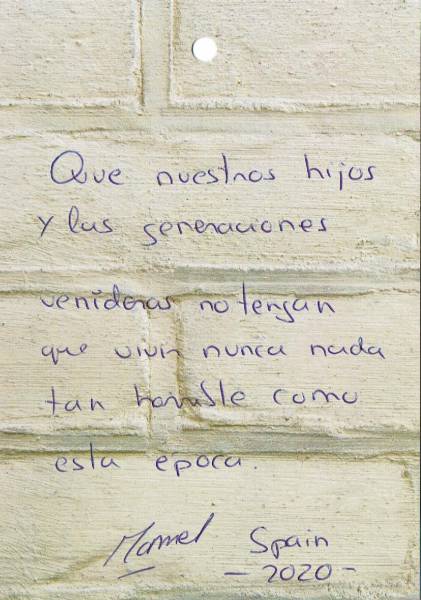 Que nuestros hijos
y las generaciones
venideras no tengan
que vivir nunca nada
tan horrible como
esta epoca.
Manuel Spain
- 2020 -